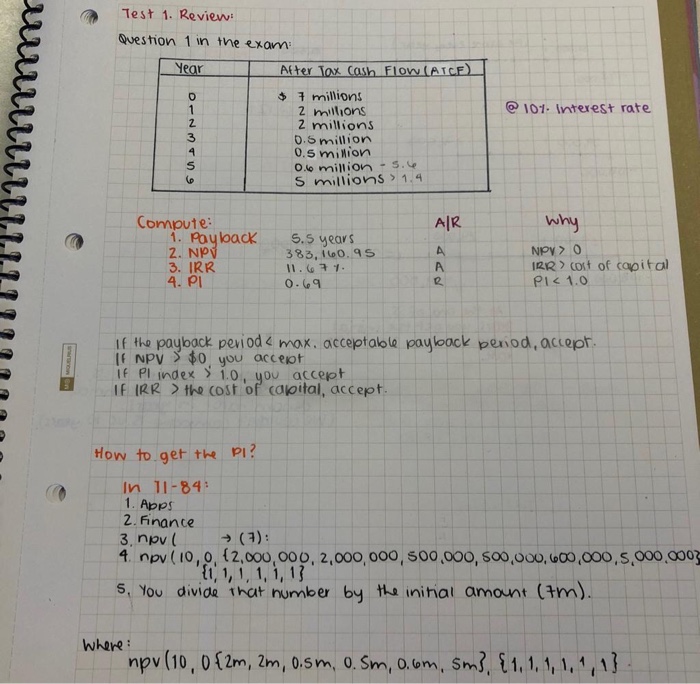 Test 1. Review:
Question 1 in the exam:
Year After Tax Cash Flow (ATCF)
0 $ 7 millions
1 2 millions
2 2 millions
3 0.5 million
4 0.5 million
5 0.6 million - 5.6
6 5 millions > 1.4
@ 10% Interest rate
Compute: A/R Why
1. Payback 5.5 years
2. NPV 383,160.95 A NPV > 0
3. IRR 11.67% A IRR > cost of capital
4. PI 0.69 R PI < 1.0
If the payback period < max. acceptable payback period, accept.
If NPV > $0, you accept
If PI index > 1.0, you accept
If IRR > the cost of capital, accept.
How to get the PI?
In TI-84:
1. Apps
2. Finance
3. npv ( → (7):
4. npv (10,0, {2,000,000, 2,000,000, 500,000, 500,000, 600,000, 5,000,000}
{1, 1, 1, 1, 1, 1}
5. You divide that number by the initial amount (7m).
Where:
npv (10, 0 {2m, 2m, 0.5m, 0.5m, 0.6m, 5m}, {1, 1, 1, 1, 1, 1}.